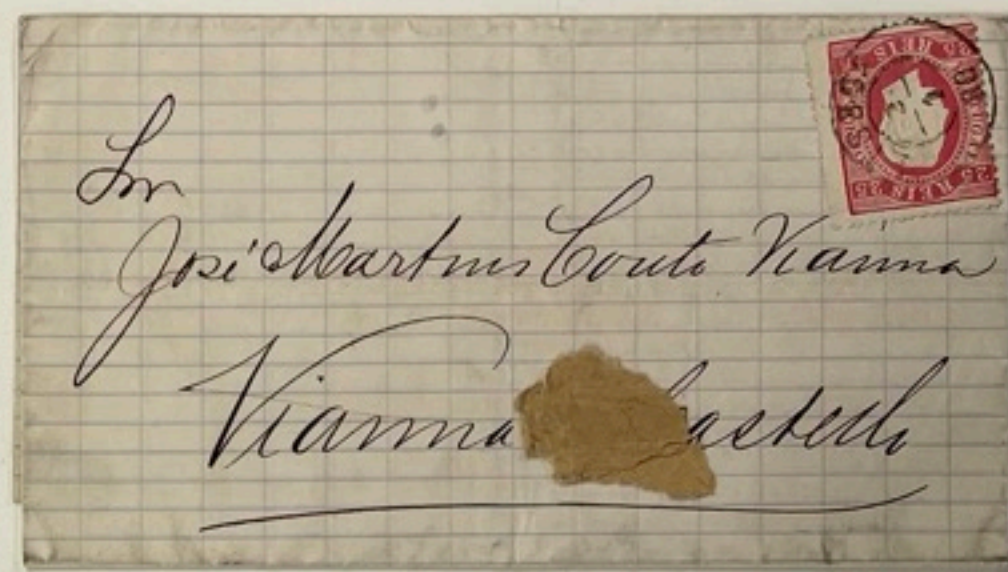 Snr
José Martins Couto Vianna
Vianna Castello
25 REIS 25